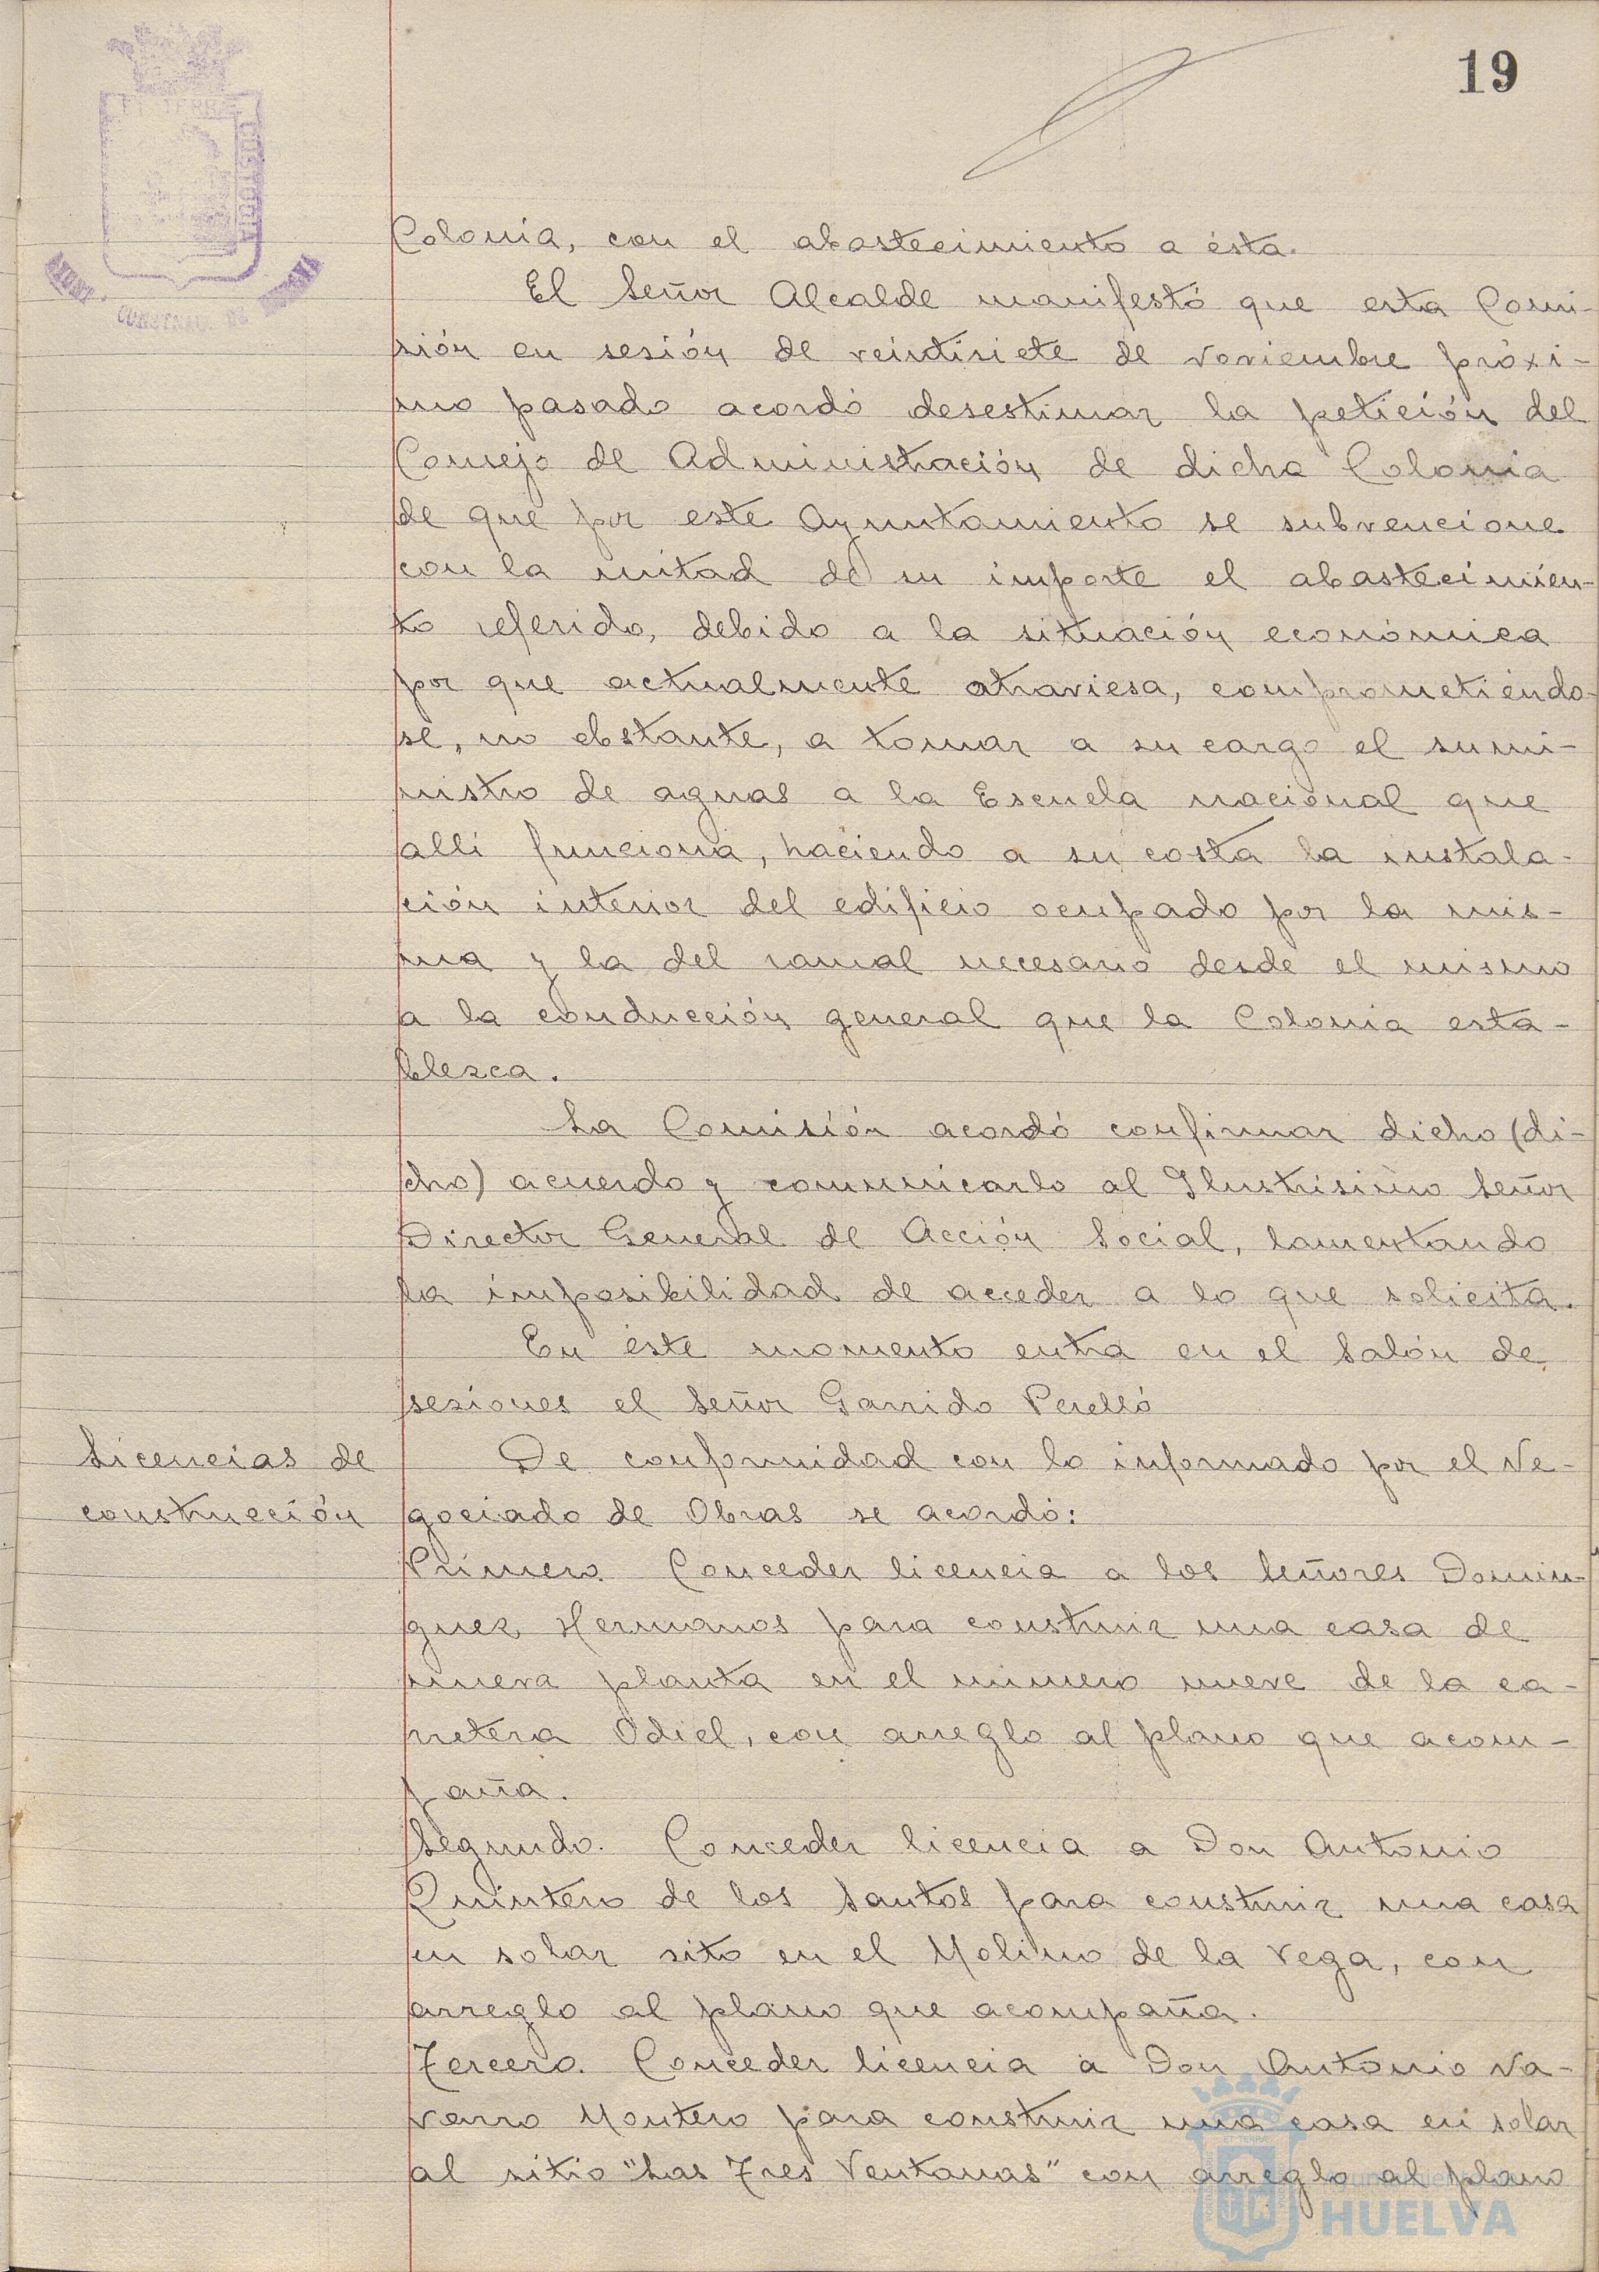 19
ET TERRÆ
CUSTODIA
AYUNT.
CONSTNAL. DE
HUELVA
Colonia, con el abastecimiento a ésta.
El Señor Alcalde manifestó que esta Comi-
sión en sesión de veintisiete de noviembre próxi-
mo pasado acordó desestimar la petición del
Consejo de Administración de dicha Colonia
de que por este Ayuntamiento se subvencione
con la mitad de su importe el abastecimien-
to referido, debido a la situación económica
por que actualmente atraviesa, comprometiéndo-
se, no obstante, a tomar a su cargo el sumi-
nistro de aguas a la Escuela nacional que
allí funciona, haciendo a su costa la instala-
ción interior del edificio ocupado por la mis-
ma y la del ramal necesario desde el mismo
a la conducción general que la Colonia esta-
blezca.
La Comisión acordó confirmar dicho (di-
cho) acuerdo y comunicarlo al Ilustrísimo Señor
Director General de Acción Social, lamentando
la imposibilidad de acceder a lo que solicita.
En éste momento entra en el Salón de
sesiones el Señor Garrido Perelló
Licencias de
construcción
De conformidad con lo informado por el Ne-
gociado de Obras se acordó:
Primero. Conceder licencia a los Señores Domin-
guez Hermanos para construir una casa de
nueva planta en el número nueve de la ca-
rretera Odiel, con arreglo al plano que acom-
paña.
Segundo. Conceder licencia a Don Antonio
Quintero de los Santos para construir una casa
en solar sito en el Molino de la Vega, con
arreglo al plano que acompaña.
Tercero. Conceder licencia a Don Antonio Na-
varro Montero para construir una casa en solar
al sitio "Las Tres Ventanas" con arreglo al plano
HUELVA